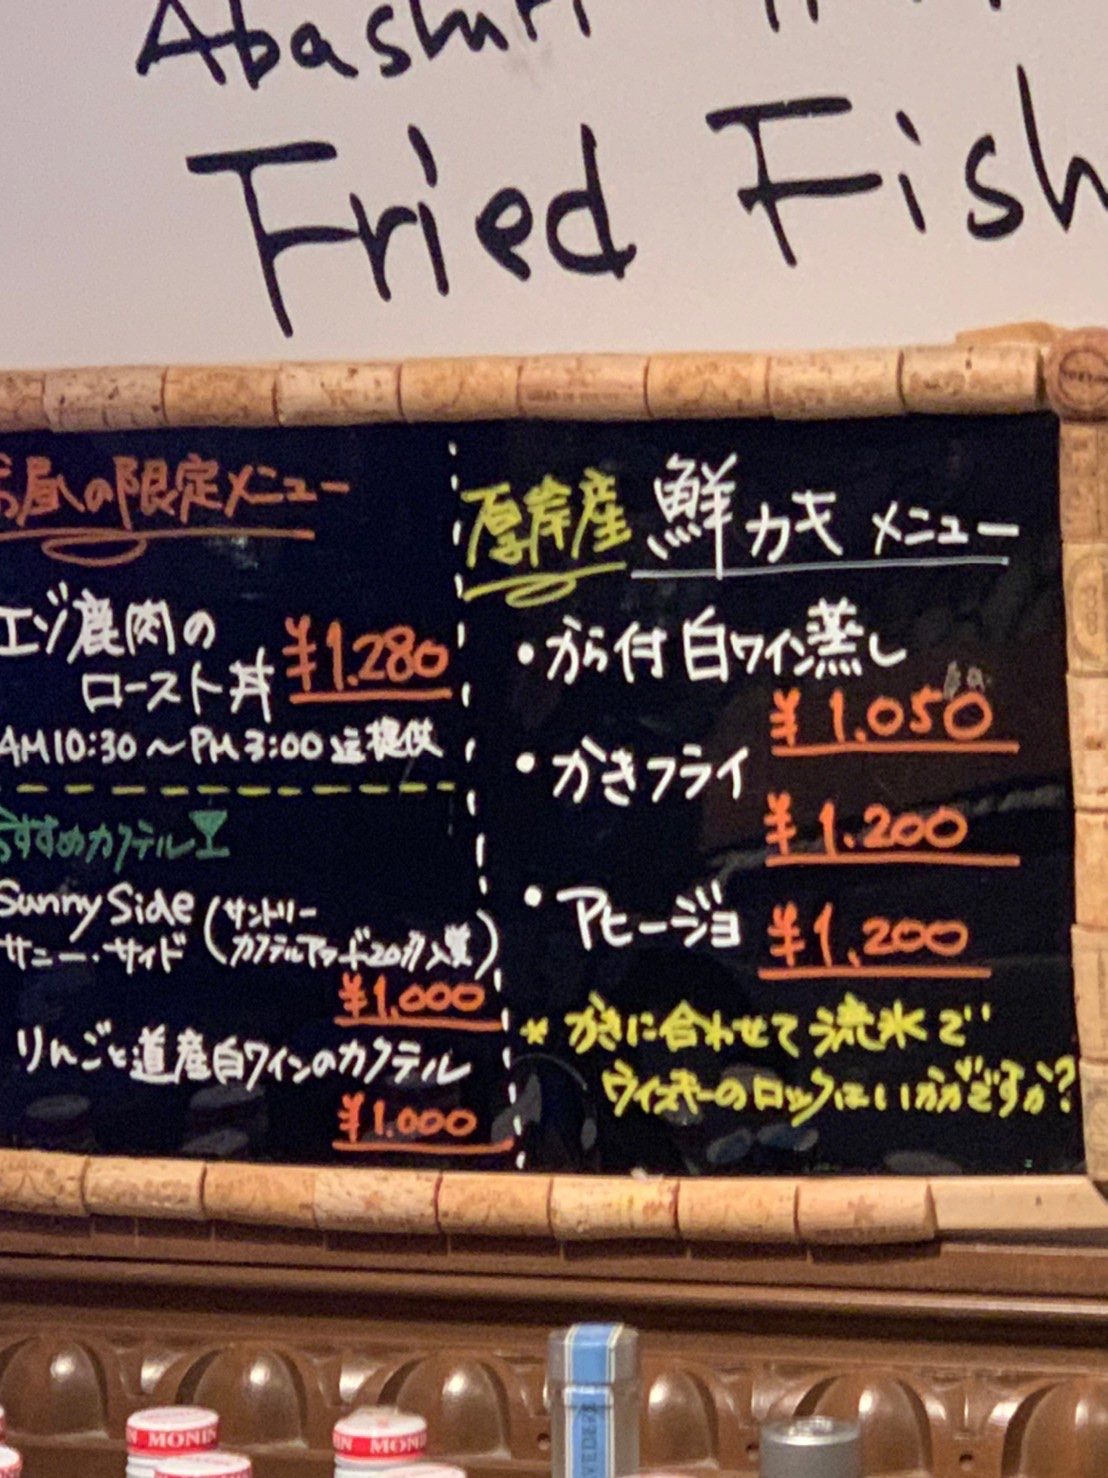 Abashiri
Fried Fish
お昼の限定メニュー
エゾ鹿肉の
ロースト丼 ¥1.280
AM10:30～PM3:00迄提供
おすすめカクテル
Sunny Side (サントリー
サニー・サイド カクテルアワード2017入賞)
¥1.000
りんごと道産白ワインのカクテル
¥1.000
厚岸産 鮮カキ メニュー
・から付白ワイン蒸し
¥1.050
・かきフライ
¥1.200
・アヒージョ ¥1,200
* かきに合わせて流氷で
ウイスキーのロックはいかがですか?
MONIN
IN MONI